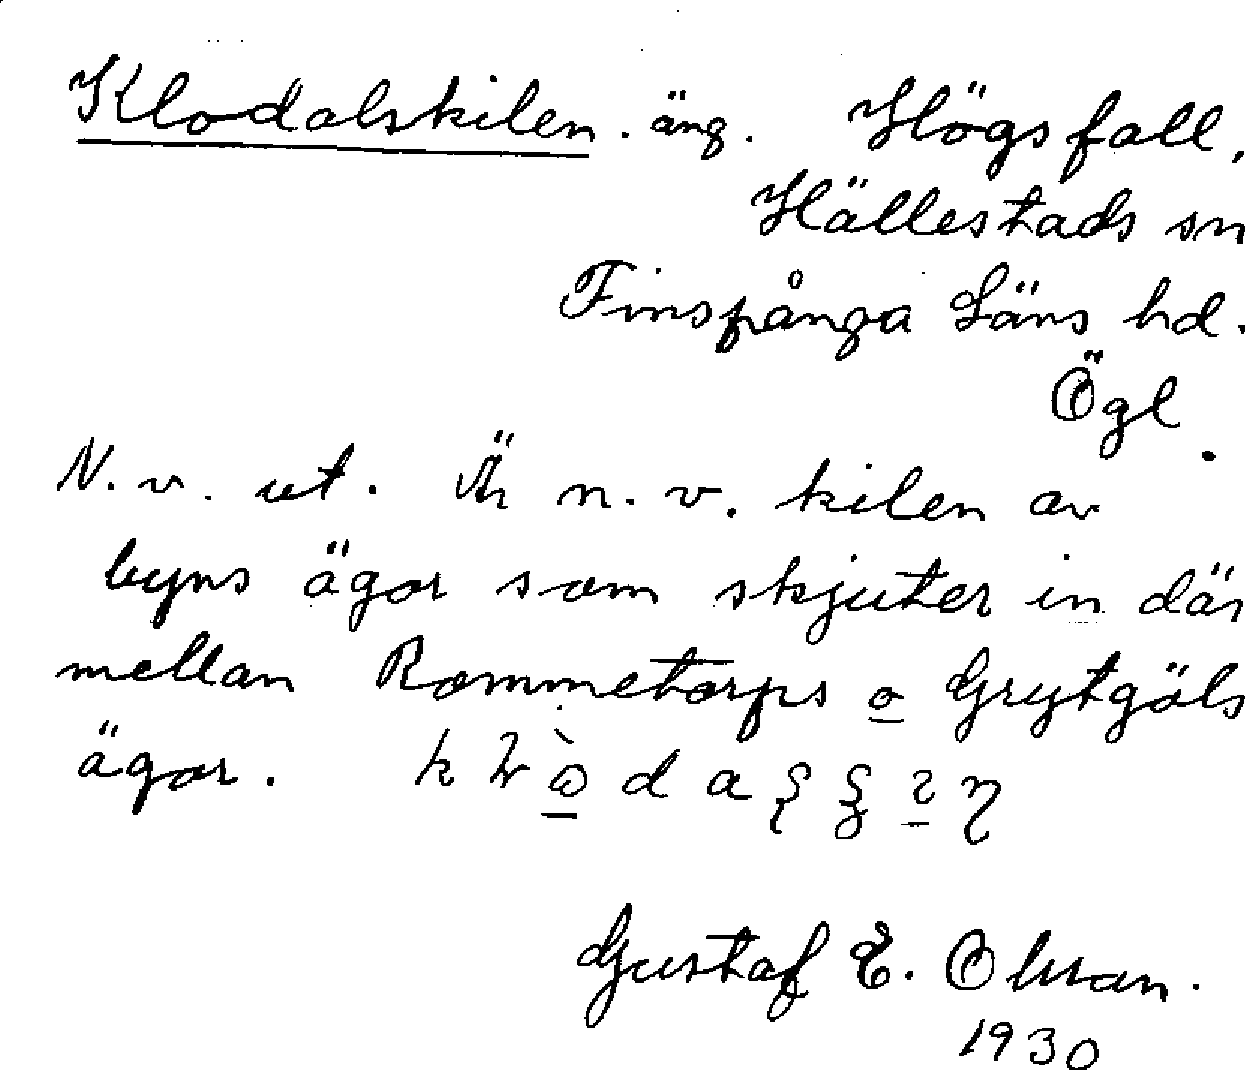 Klodalskilen. äng. Högsfall,
Hällestads sn
Finspånga Läns hd.
Ögl.
N. v. ut. Är n. v. kilen av
byns ägor som skjuter in där
mellan Rommetorps o Grytgöls
ägor.
Gustaf E. Olsson.
1930